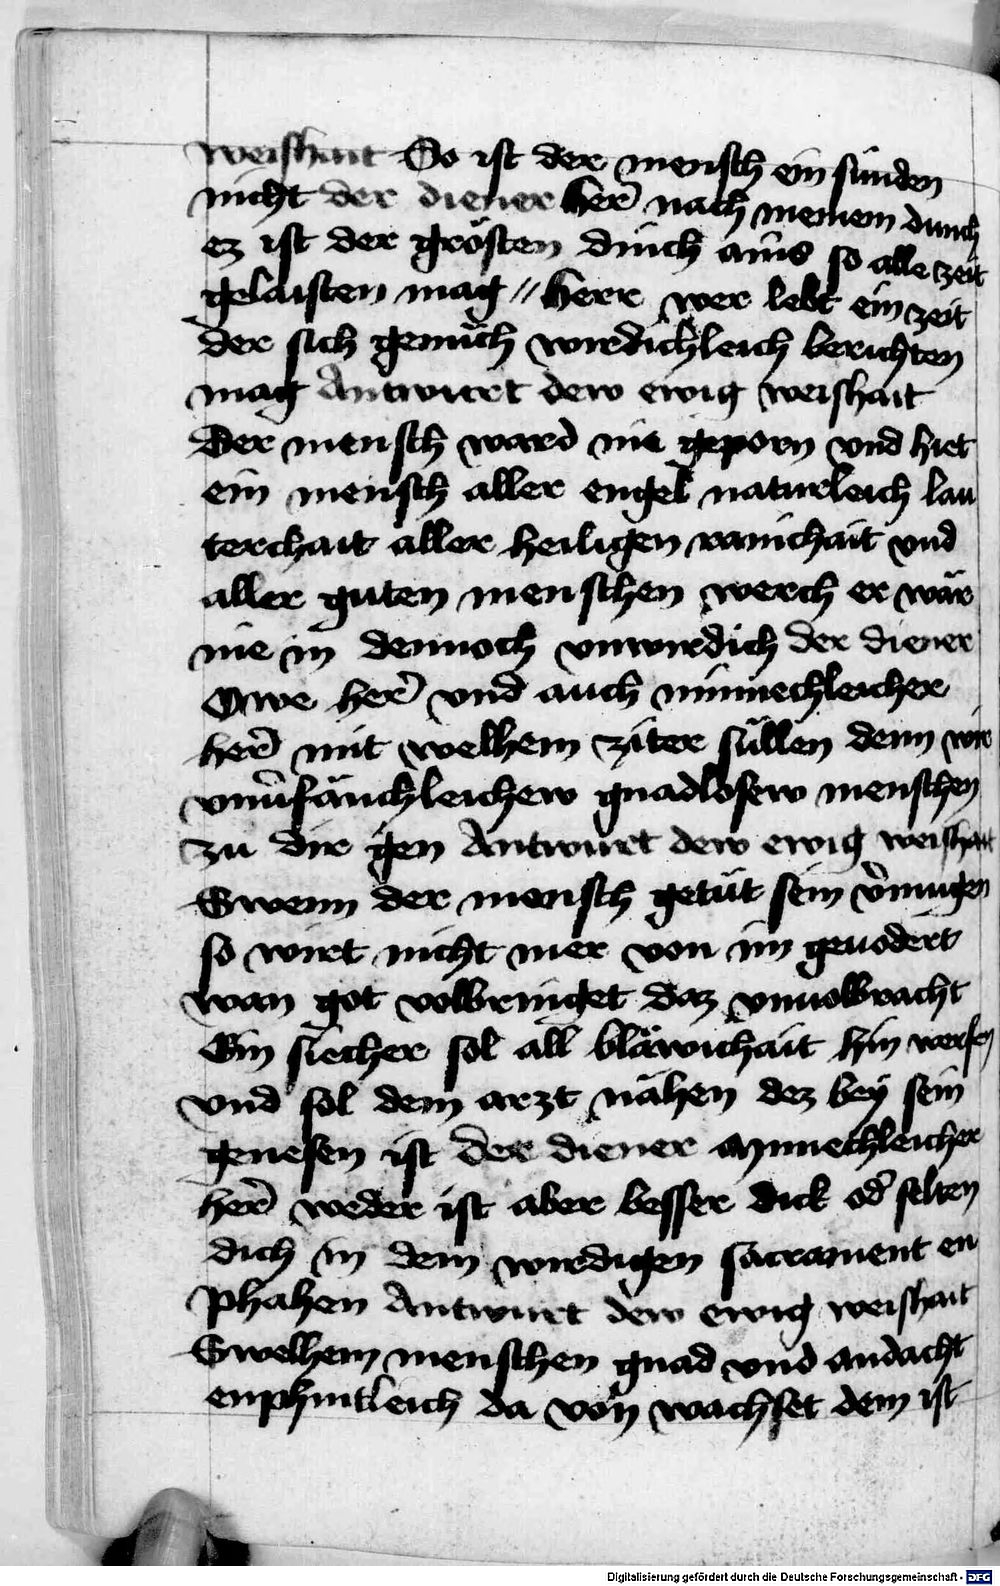 weishait So ist der mensch ein sunden
nicht der diener her̄ nach meinem dunch
ez ist der grösten dinch ains so alle zeit
gelaisten mag // herr wer lebt ein zeit
der sich genüch wirdichleich berichten
mag Antwurt dew ewig weishait
Der mensch ward nie geporn vnd hiet
ein mensch aller engel naturleich lau
terchait aller heiligen rainichait vnd
aller guten menschen werch er wär
nie in dennoch vnwirdich der diener
Owe her̄ vnd auch minnechleicher
her̄ mit welhem ziter süllen denn wir
gnadlosew menschen
zu dir gen Antwurt dew ewig weishait
Swenn der mensch getüt sein v̄mugen
so wirt nicht mer von im geuodert
wan got volbringet daz vnuolbracht
Ein siecher sol all bläwichait hin werfen
vnd sol dem arzt nähen dez bey sein
genesen ist der diener Mynnechleicher
her̄ weder ist aber besser dick od̄ selten
dich in dem wirdigen sacrament en
phahen Antwurt dew ewig weishait
Swelhem menschen gnad vnd andacht
enphintleich da von wachset dem ist
Digitalisierung gefördert durch die Deutsche Forschungsgemeinschaft - DFG